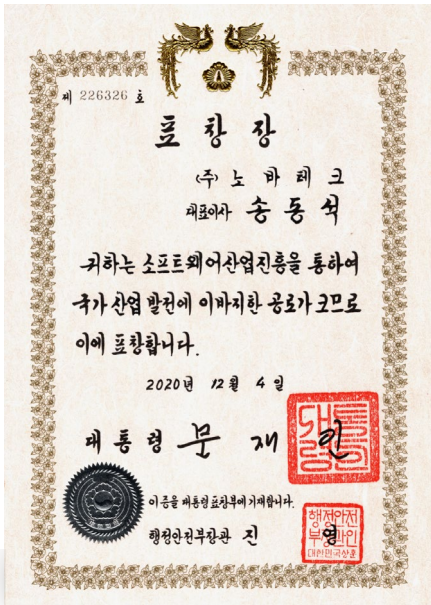 제 226326 호
표창장
(주) 노바테크
대표이사 송동석
귀하는 소프트웨어산업진흥을 통하여
국가 산업 발전에 이바지한 공로가 크므로
이에 표창합니다.
2020년 12월 4일
대통령 문재인
이 증을 대통령표창부에 기재합니다.
행정안전부장관 진영